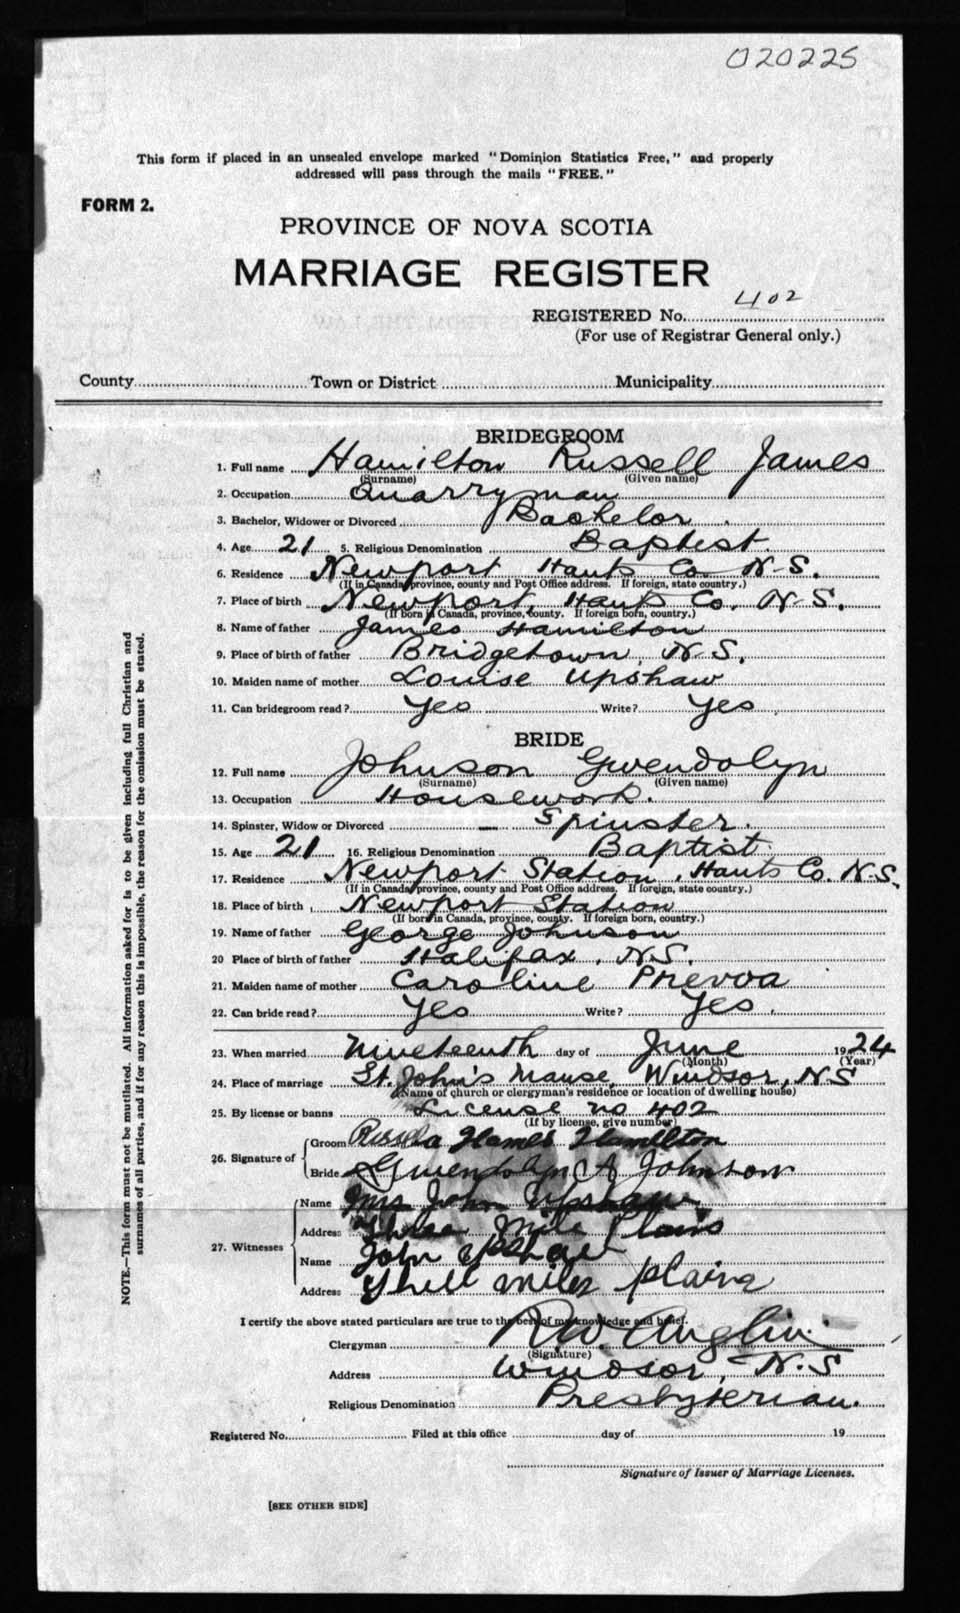 020225
This form if placed in an unsealed envelope marked "Dominion Statistics Free," and properly
addressed will pass through the mails "FREE."
FORM 2.
PROVINCE OF NOVA SCOTIA
MARRIAGE REGISTER
REGISTERED No. 402
(For use of Registrar General only.)
County Town or District Municipality
BRIDEGROOM
1. Full name Hamilton Russell James
(Surname) (Given name)
2. Occupation Quarryman
3. Bachelor, Widower or Divorced Bachelor
4. Age 21 5. Religious Denomination Baptist.
6. Residence Newport Hants Co. N.S.
(If in Canada, province, county and Post Office address. If foreign, state country.)
7. Place of birth Newport, Hants Co. N.S.
(If born in Canada, province, county. If foreign born, country.)
8. Name of father James Hamilton
9. Place of birth of father Bridgetown, N.S.
10. Maiden name of mother Louise Upshaw
11. Can bridegroom read? Yes Write? Yes
BRIDE
12. Full name Johnson Gwendolyn
(Surname) (Given name)
13. Occupation Housework.
14. Spinster, Widow or Divorced - Spinster.
15. Age 21 16. Religious Denomination Baptist.
17. Residence Newport Station, Hants Co. N.S.
(If in Canada province, county and Post Office address. If foreign, state country.)
18. Place of birth Newport Station
(If born in Canada, province, county. If foreign born, country.)
19. Name of father George Johnson
20 Place of birth of father Halifax, N.S.
21. Maiden name of mother Caroline Prevoa
22. Can bride read? Yes Write? Yes.
23. When married Nineteenth day of June 1924
(Month) (Year)
24. Place of marriage St. John's Manse, Windsor, N.S
(Name of church or clergyman's residence or location of dwelling house)
25. By license or banns License no 402
(If by license, give number)
26. Signature of Groom James Hamilton
Bride Gwendolyn A Johnson
27. Witnesses Name Mrs John Upshaw
Address Three Mile Plains
Name John
Address Mile Plains
I certify the above stated particulars are true to the best of my knowledge and belief.
Clergyman R.W. Anglin.
(Signature)
Address Windsor, N.S
Religious Denomination Presbyterian.
Registered No. Filed at this office day of 19
Signature of Issuer of Marriage Licenses.
[SEE OTHER SIDE]
NOTE.—This form must not be mutilated. All information asked for is to be given including full Christian and
surnames of all parties, and if for any reason this is impossible, the reason for the omission must be stated.